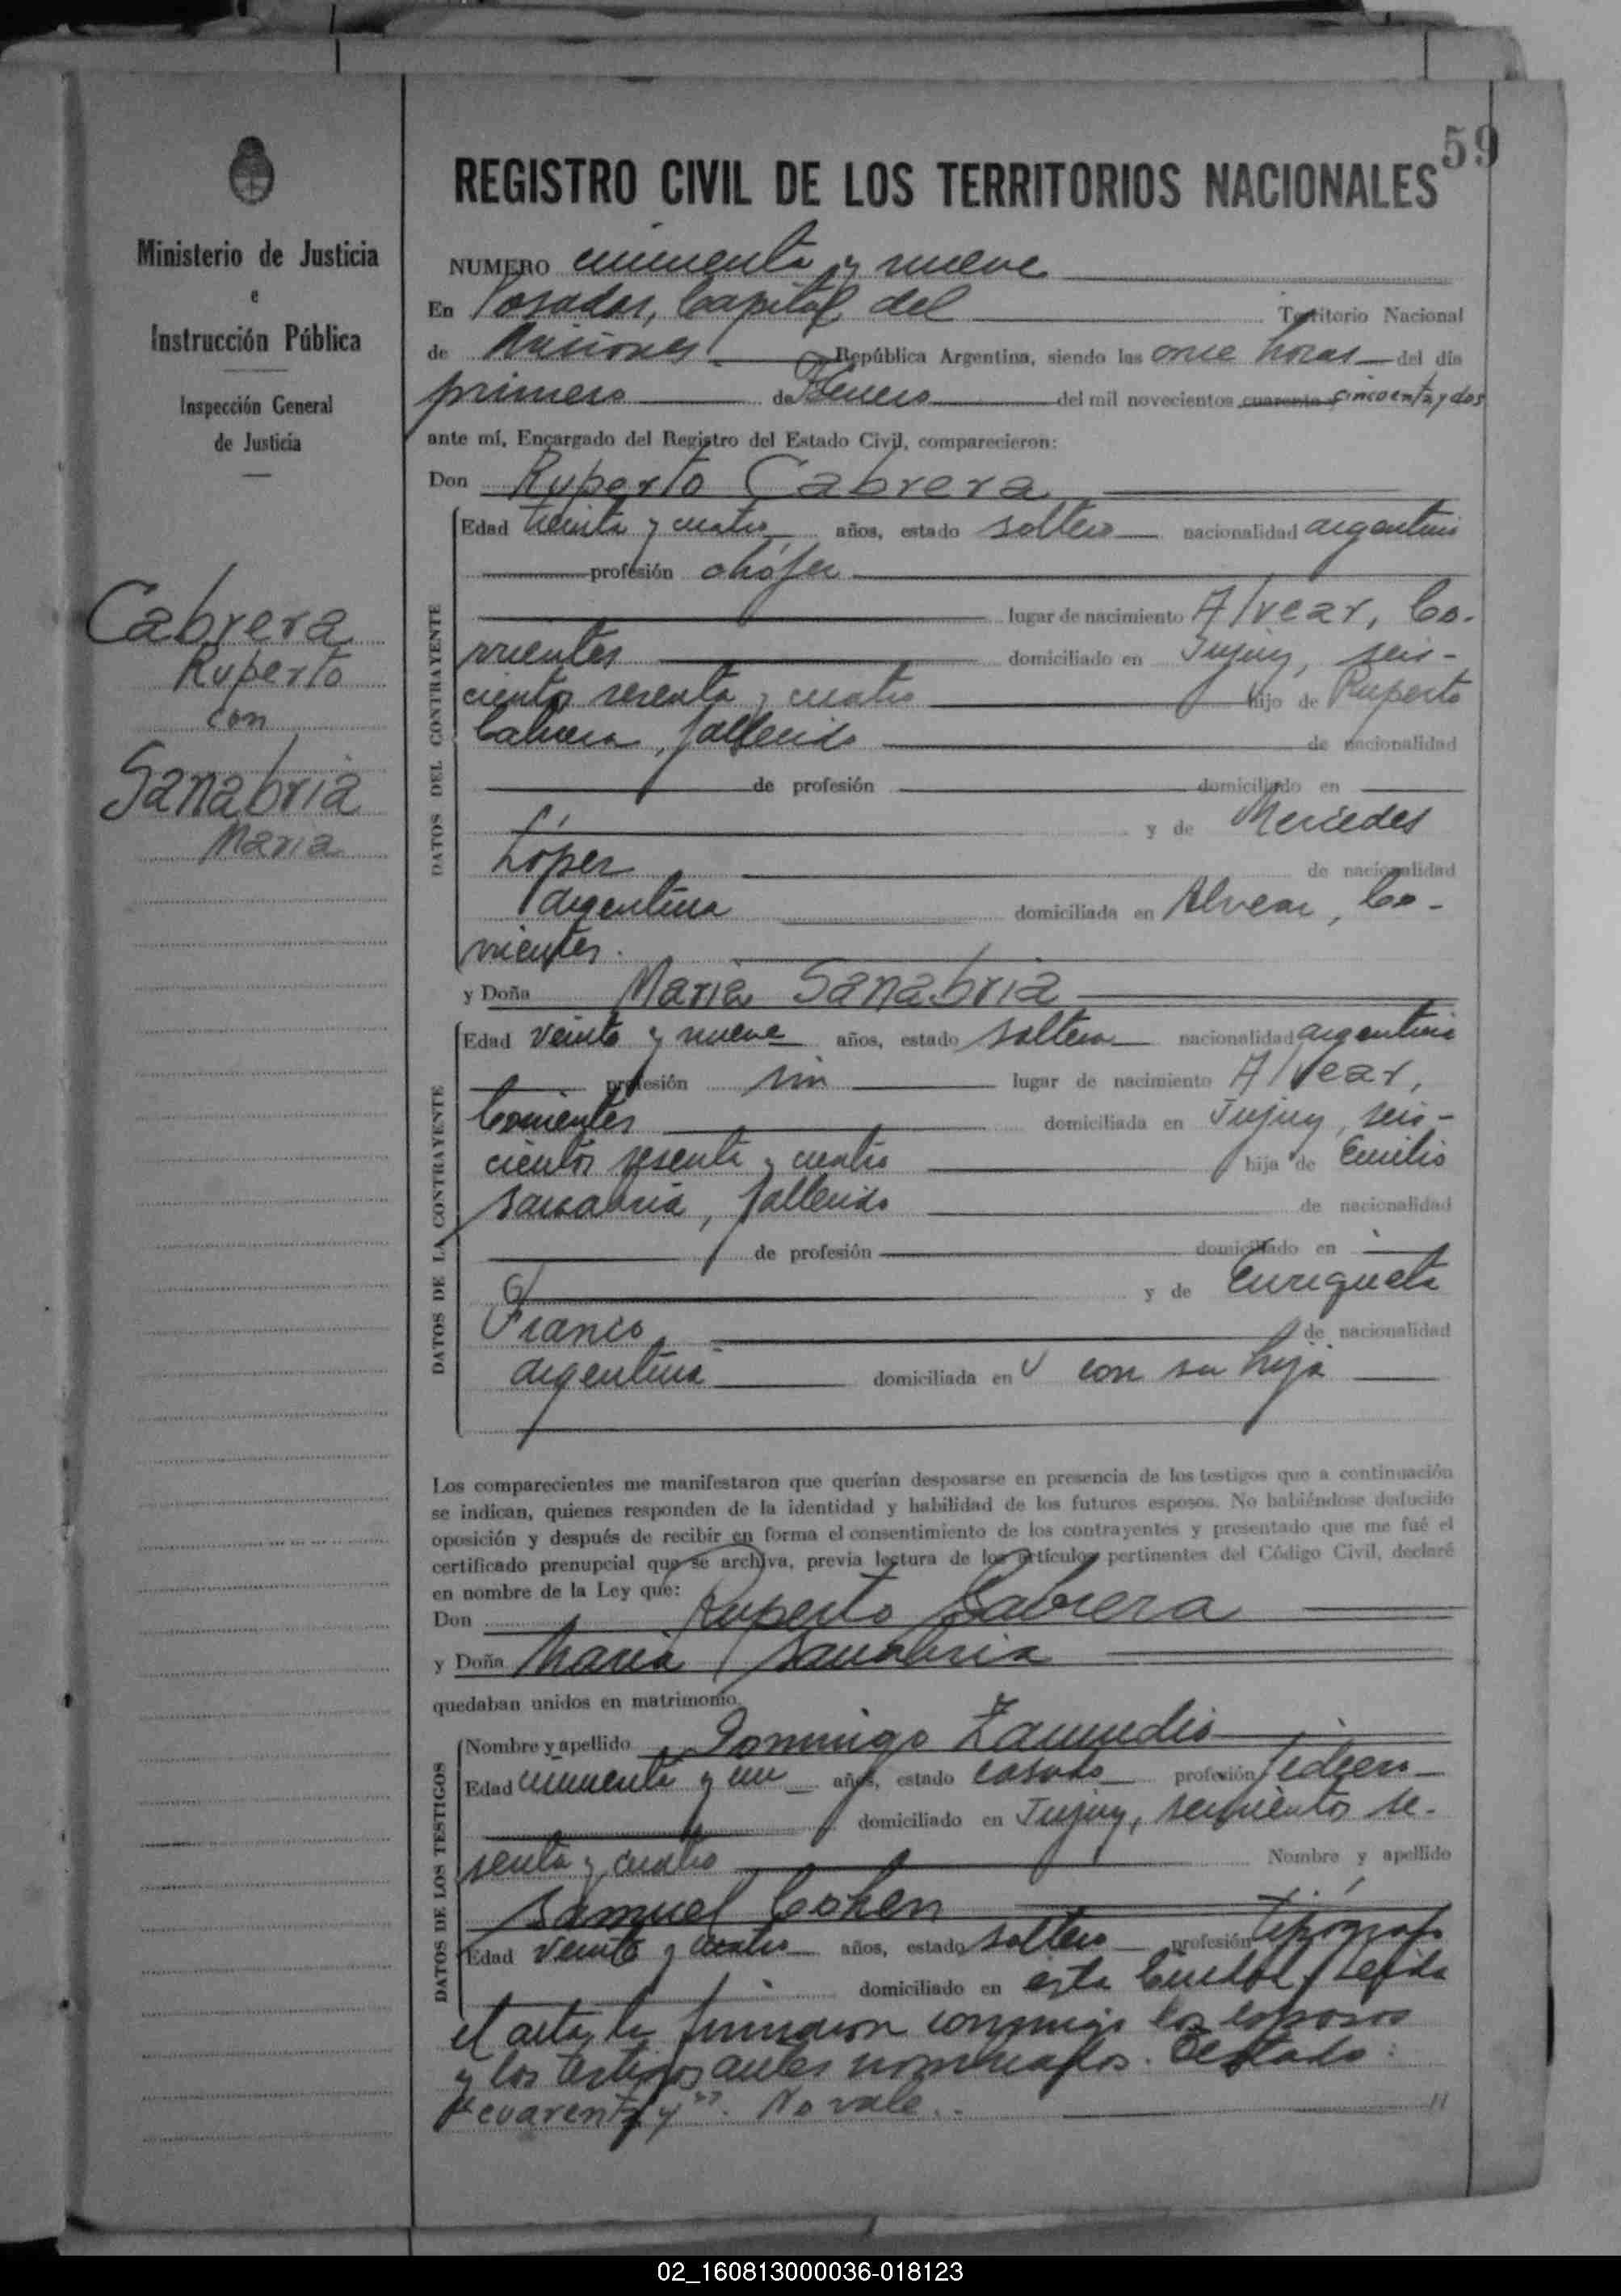 59
REGISTRO CIVIL DE LOS TERRITORIOS NACIONALES
Ministerio de Justicia
e
Instrucción Pública
Inspección General
de Justicia
Cabrera
Ruperto
con
Sanabria
Maria
NUMERO cincuenta y nueve
En Posadas, Capital del Territorio Nacional
de Misiones República Argentina, siendo las once horas del día
primero de Febrero del mil novecientos cuarenta y cincuenta y dos
ante mí, Encargado del Registro del Estado Civil, comparecieron:
Don Ruperto Cabrera
DATOS DEL CONTRAYENTE
Edad treinta y cuatro años, estado soltero nacionalidad argentino
profesión chófer
lugar de nacimiento Alvear, Co-
rrientes domiciliado en Jujuy, seis-
cientos sesenta y cuatro hijo de Ruperto
Cabrera, fallecido de nacionalidad
de profesión domiciliado en
y de Mercedes
López de nacionalidad
argentina domiciliada en Alvear, Co-
rrientes.
y Doña Maria Sanabria
DATOS DE LA CONTRAYENTE
Edad veinte y nueve años, estado soltera nacionalidad argentina
profesión sin lugar de nacimiento Alvear,
Corrientes domiciliada en Jujuy, seis-
cientos sesenta y cuatro hija de Emilio
Sanabria, fallecido de nacionalidad
de profesión domiciliado en
y de Enriqueta
Franco de nacionalidad
argentina domiciliada en con su hija
Los comparecientes me manifestaron que querían desposarse en presencia de los testigos que a continuación
se indican, quienes responden de la identidad y habilidad de los futuros esposos. No habiéndose deducido
oposición y después de recibir en forma el consentimiento de los contrayentes y presentado que me fué el
certificado prenupcial que se archiva, previa lectura de los artículos pertinentes del Código Civil, declaré
en nombre de la Ley que:
Don Ruperto Cabrera
y Doña Maria Sanabria
quedaban unidos en matrimonio.
DATOS DE LOS TESTIGOS
Nombre y apellido Domingo Zamudio
Edad cincuenta y un años, estado casado profesión
domiciliado en Jujuy, seiscientos se-
senta y cuatro Nombre y apellido
Samuel Cohen
Edad veinte y cuatro años, estado soltero profesión tipógrafo
domiciliado en esta Ciudad. Leída
el acta, la firmaron conmigo los esposos
y los testigos antes nombrados. Testado:
"cuarenta y". No vale.
02_160813000036-018123